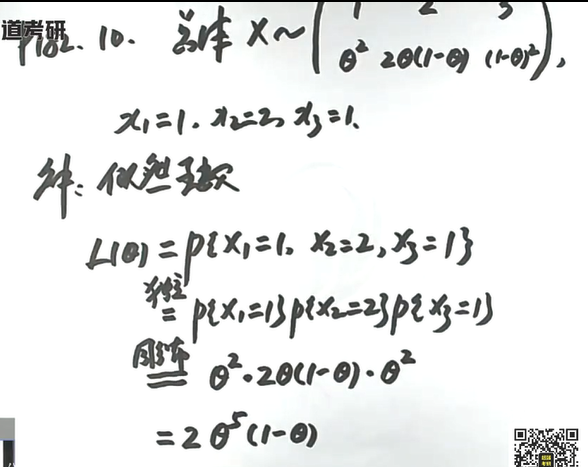 道考研
P182. 10. 总体 X~( 1 2 3
θ² 2θ(1-θ) (1-θ)² ),
x₁=1. x₂=2, x₃=1.
解: 似然函数
L(θ) = P{X₁=1, X₂=2, X₃=1}
独立
= P{X₁=1}P{X₂=2}P{X₃=1}
同分布
= θ²·2θ(1-θ)·θ²
= 2θ⁵(1-θ)